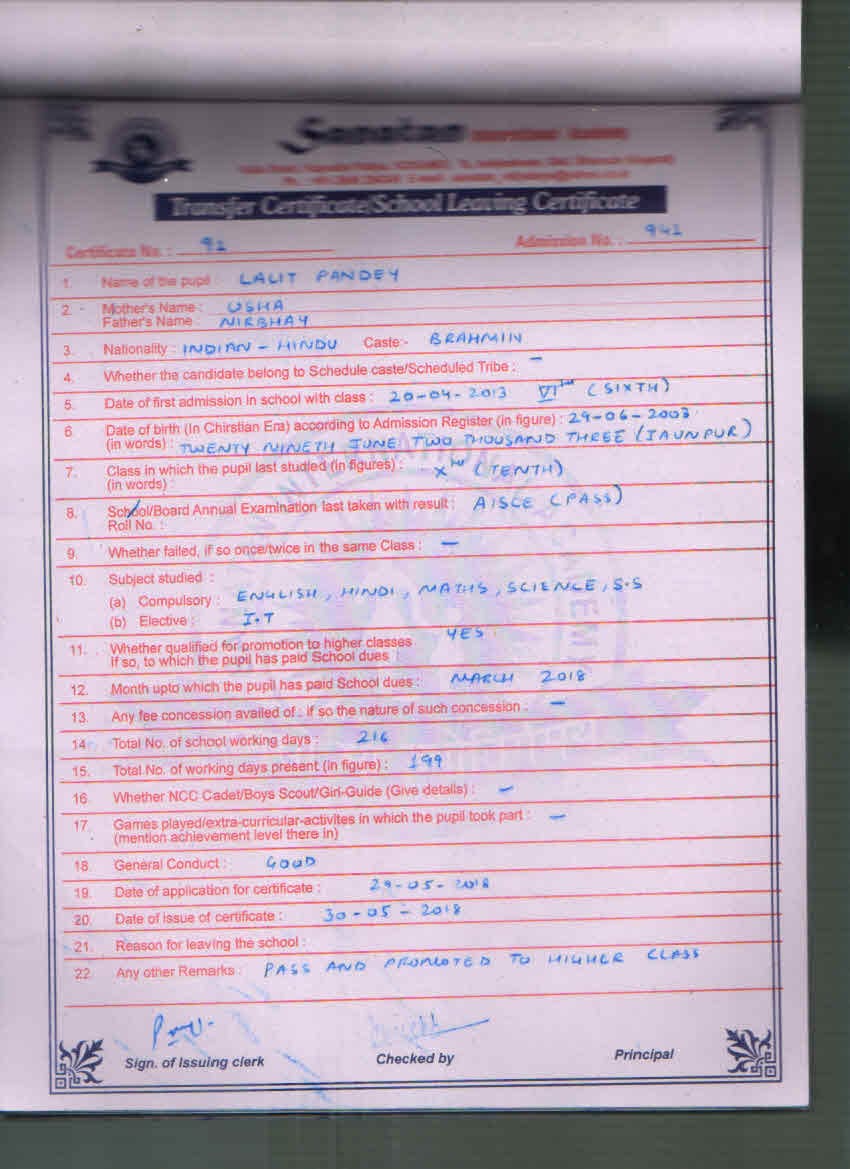 Sanatan International Academy
Transfer Certificate/School Leaving Certificate
Certificate No. : 92
Admission No. : 942
1. Name of the pupil : LALIT PANDEY
2. Mother's Name : USHA
Father's Name : NIRBHAY
3. Nationality : INDIAN - HINDU Caste:- BRAHMIN
4. Whether the candidate belong to Schedule caste/Scheduled Tribe : —
5. Date of first admission in school with class : 20-04-2013 VIth (SIXTH)
6. Date of birth (In Chirstian Era) according to Admission Register (in figure) : 29-06-2003
(in words) : TWENTY NINETH JUNE TWO THOUSAND THREE (JAUNPUR)
7. Class in which the pupil last studied (in figures) : Xth (TENTH)
(in words) :
8. School/Board Annual Examination last taken with result : AISCE (PASS)
Roll No. :
9. Whether failed, if so once/twice in the same Class : —
10. Subject studied :
(a) Compulsory : ENGLISH, HINDI, MATHS, SCIENCE, S.S
(b) Elective : I.T
11. Whether qualified for promotion to higher classes YES
If so, to which the pupil has paid School dues :
12. Month upto which the pupil has paid School dues : MARCH 2018
13. Any fee concession availed of : if so the nature of such concession : —
14. Total No. of school working days : 216
15. Total No. of working days present (in figure) : 199
16. Whether NCC Cadet/Boys Scout/Girl-Guide (Give details) : —
17. Games played/extra-curricular-activites in which the pupil took part : —
(mention achievement level there in)
18. General Conduct : GOOD
19. Date of application for certificate : 29-05-2018
20. Date of issue of certificate : 30-05-2018
21. Reason for leaving the school :
22. Any other Remarks : PASS AND PROMOTED TO HIGHER CLASS
Sign. of Issuing clerk
Checked by
Principal